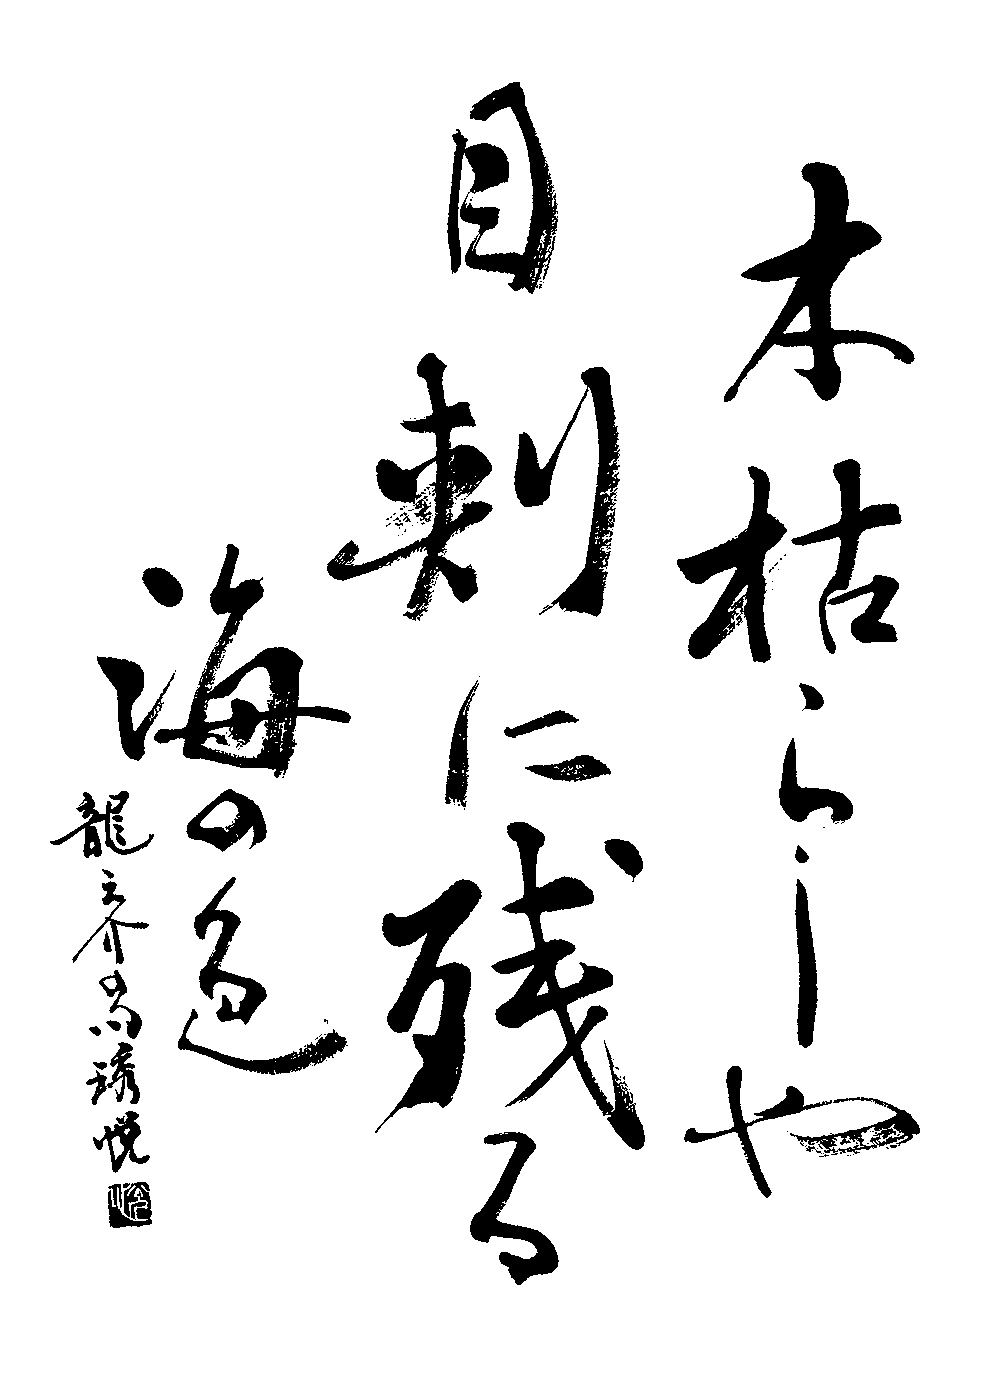 木枯らしや
目刺に残る
海の色
龍之介の句 琇悦